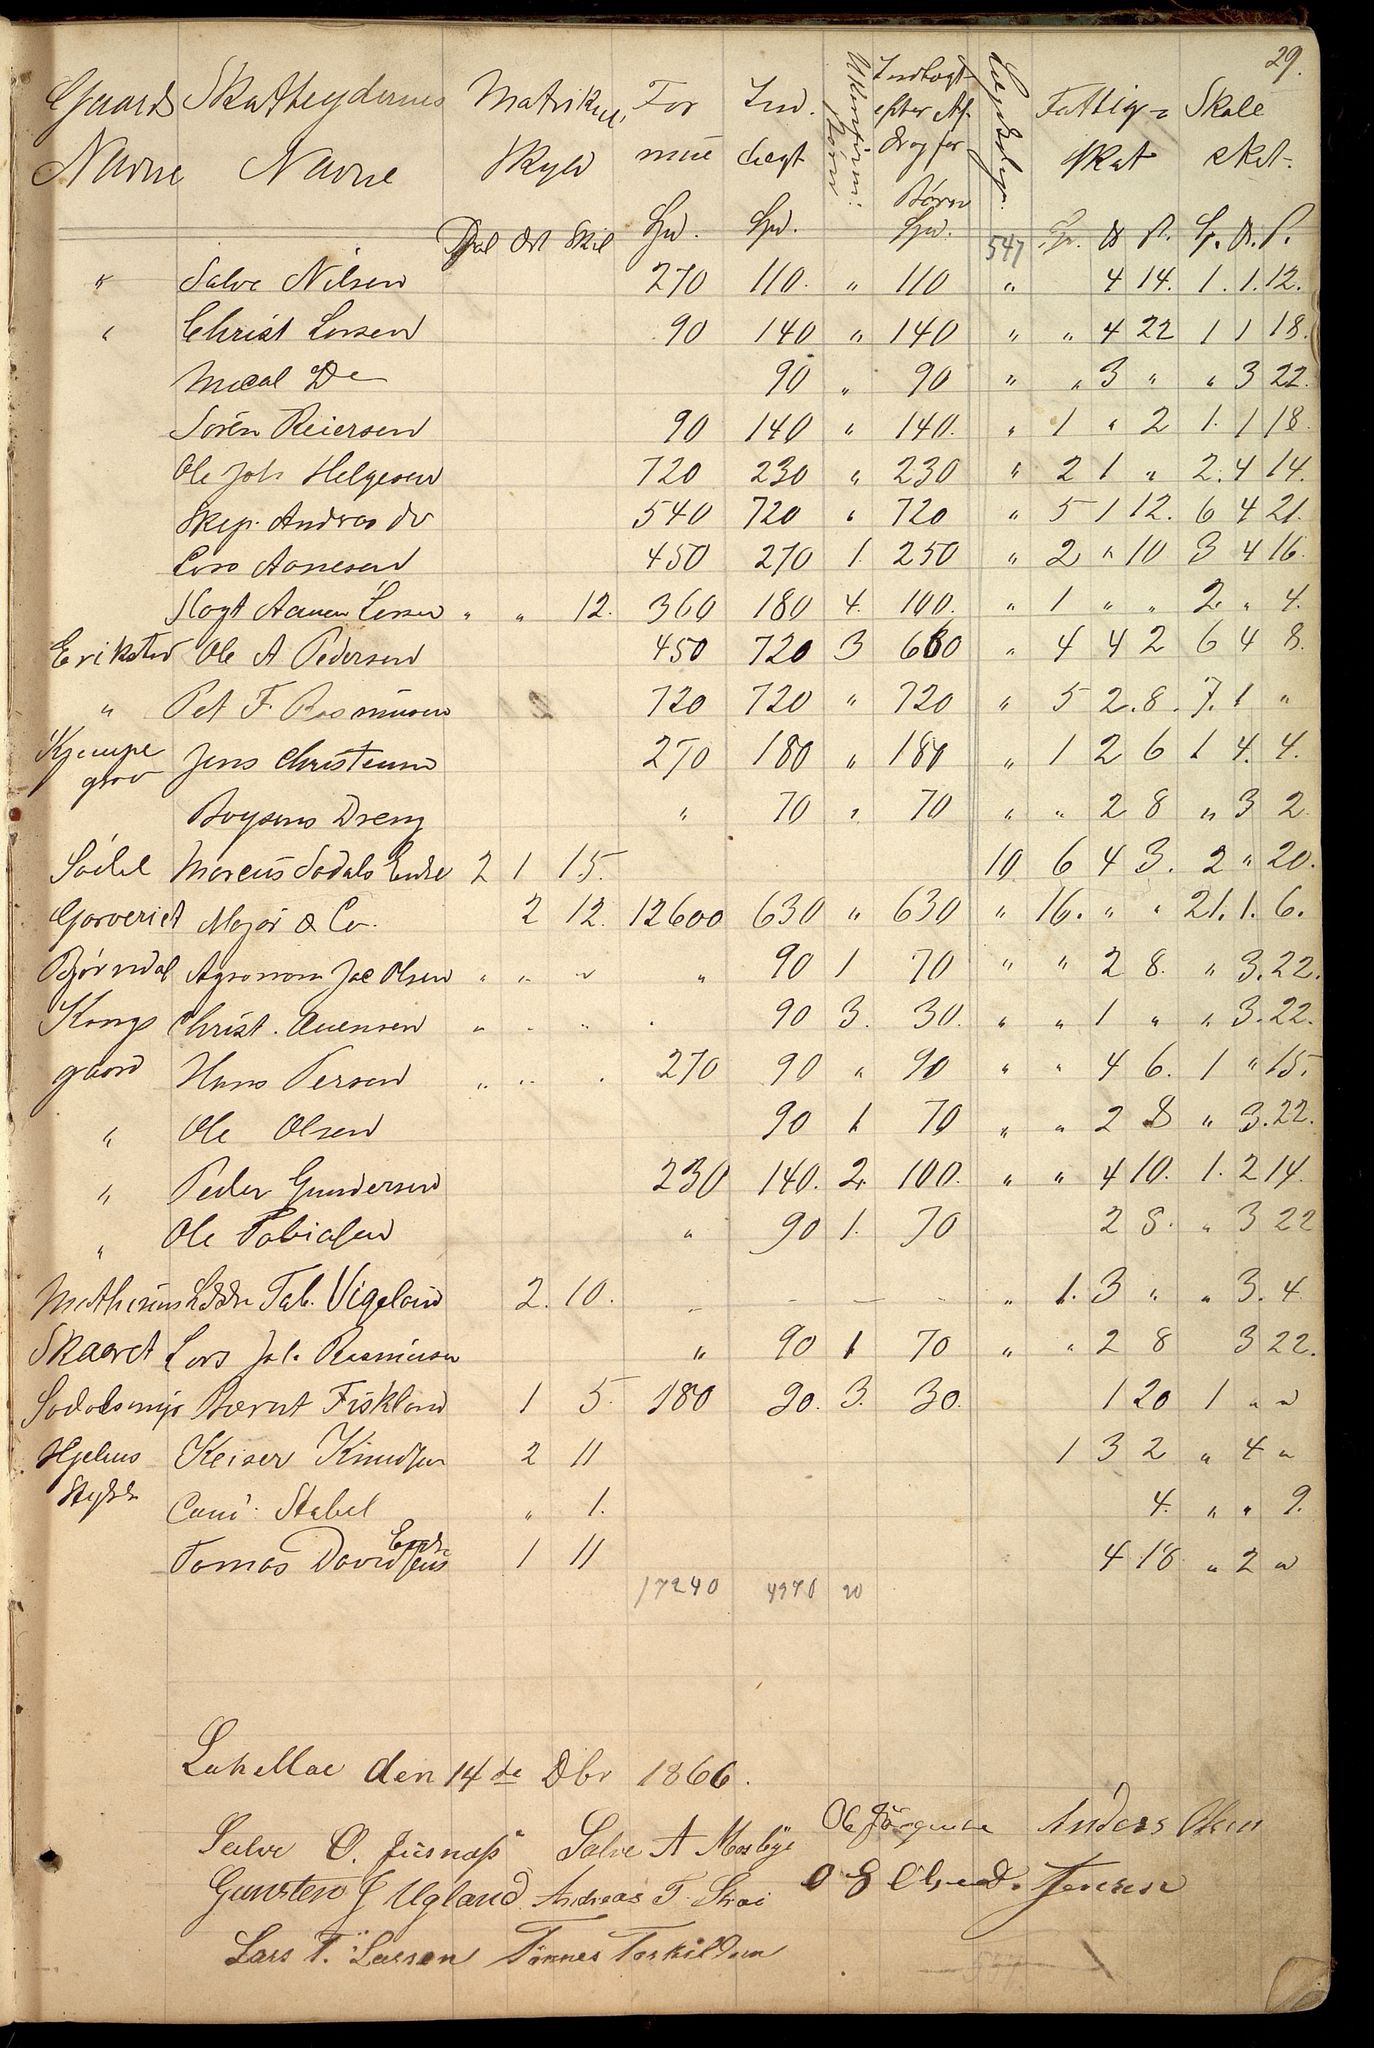 29.
Gaards Skatteydernes Matrikul For Ind Uforsørgede Børn Indtægt efter Af- Lægdslagn. Fattig- Skole
Navne Navne Skyld mue tægt drag for Børn skat skat.
Dal Ort Skil Spd. Spd. Spd. 547 Sp. ort S. Sp. ort S.
" Salve Nilsen 270 110. " 110 " 4 14. 1. 1. 12.
" Christ Larsen 90 140 " 140 " " 4 22 1 1 18.
Do 90 " 90 " " 3 " " 3 22.
Sørén Reiersen 90 140 " 140. " 1 " 2 1. 1 18.
Ole Joh Helgesen 720 230 " 230 " 2 1 " 2. 4 14.
Skip. Andreas do 540 720 " 720 " 5 1 12. 6 4 21.
Lars Aanesen 450 270 1. 250 " 2 " 10 3 4 16.
Aanen Larsen " " 12. 360 180 4. 100. " 1 " " 2. " 4.
Erikstad Ole A Pedersen 450 720 3 660 " 4 4 2 6 4 8.
" Pet F. Rasmusen 720 720 " 720 " 5 2. 8. 7. 1 "
Kjempe Jens Christensen 270 180 " 180 " 1 2 6 1 4. 4.
grav
Boysens Dreng " 70 " 70 " " 2 8 " 3 2
Sødal Marcus Sødals Enke 2 1 15. 10. 6 4 3. 2 " 20.
Garveriet Major & Co. 2 12. 12600 630 " 630 " 16. " " 21. 1. 6.
Bjørndal Agronom Jac Olsen " " " " 90 1 70 " " 2 8. " 3. 22.
Kongs Christ. Auensen " " " " 90 3. 30. " " 1 " " 3. 22.
gaard Hans Persen " " " 270 90 " 90 " " 4 6. 1 " 15.
" Ole Olsen 90 1 70 " " 2 8 " 3. 22.
" Peder Gundersen 230 140. 2 100. " " 4 10. 1. 2 14.
" Ole Tobiasen " 90 1. 70 2 8. " 3 22
Tab. Vigeland 2. 10. – – – – " 1. 3 " " 3. 4
Skaaret Lars Joh. Rasmusen " 90 1 70 " " 2 8 3 22.
Sødalsmyr Bernt Fiskland 1 5. 180 90. 3. 30. 1 20 1 " "
Hjelms Keiser Knudsen 2 11 1 3 2 " 4 "
Stykke Stabel " 1. 4. " " 9.
Tomas Davidsens Enke 1 11 4 18 " 2 "
17240 4970 20
Lahellae den 14de Dbr 1866.
Salve O. Jusnæs Salve A Mosbye Ole Jörgensen Anders Olsen
Gunsten J Ugland Andreas T. Strai O E Olsen D. Jensen
Lars T. Larsen Tönnes Torkildsen